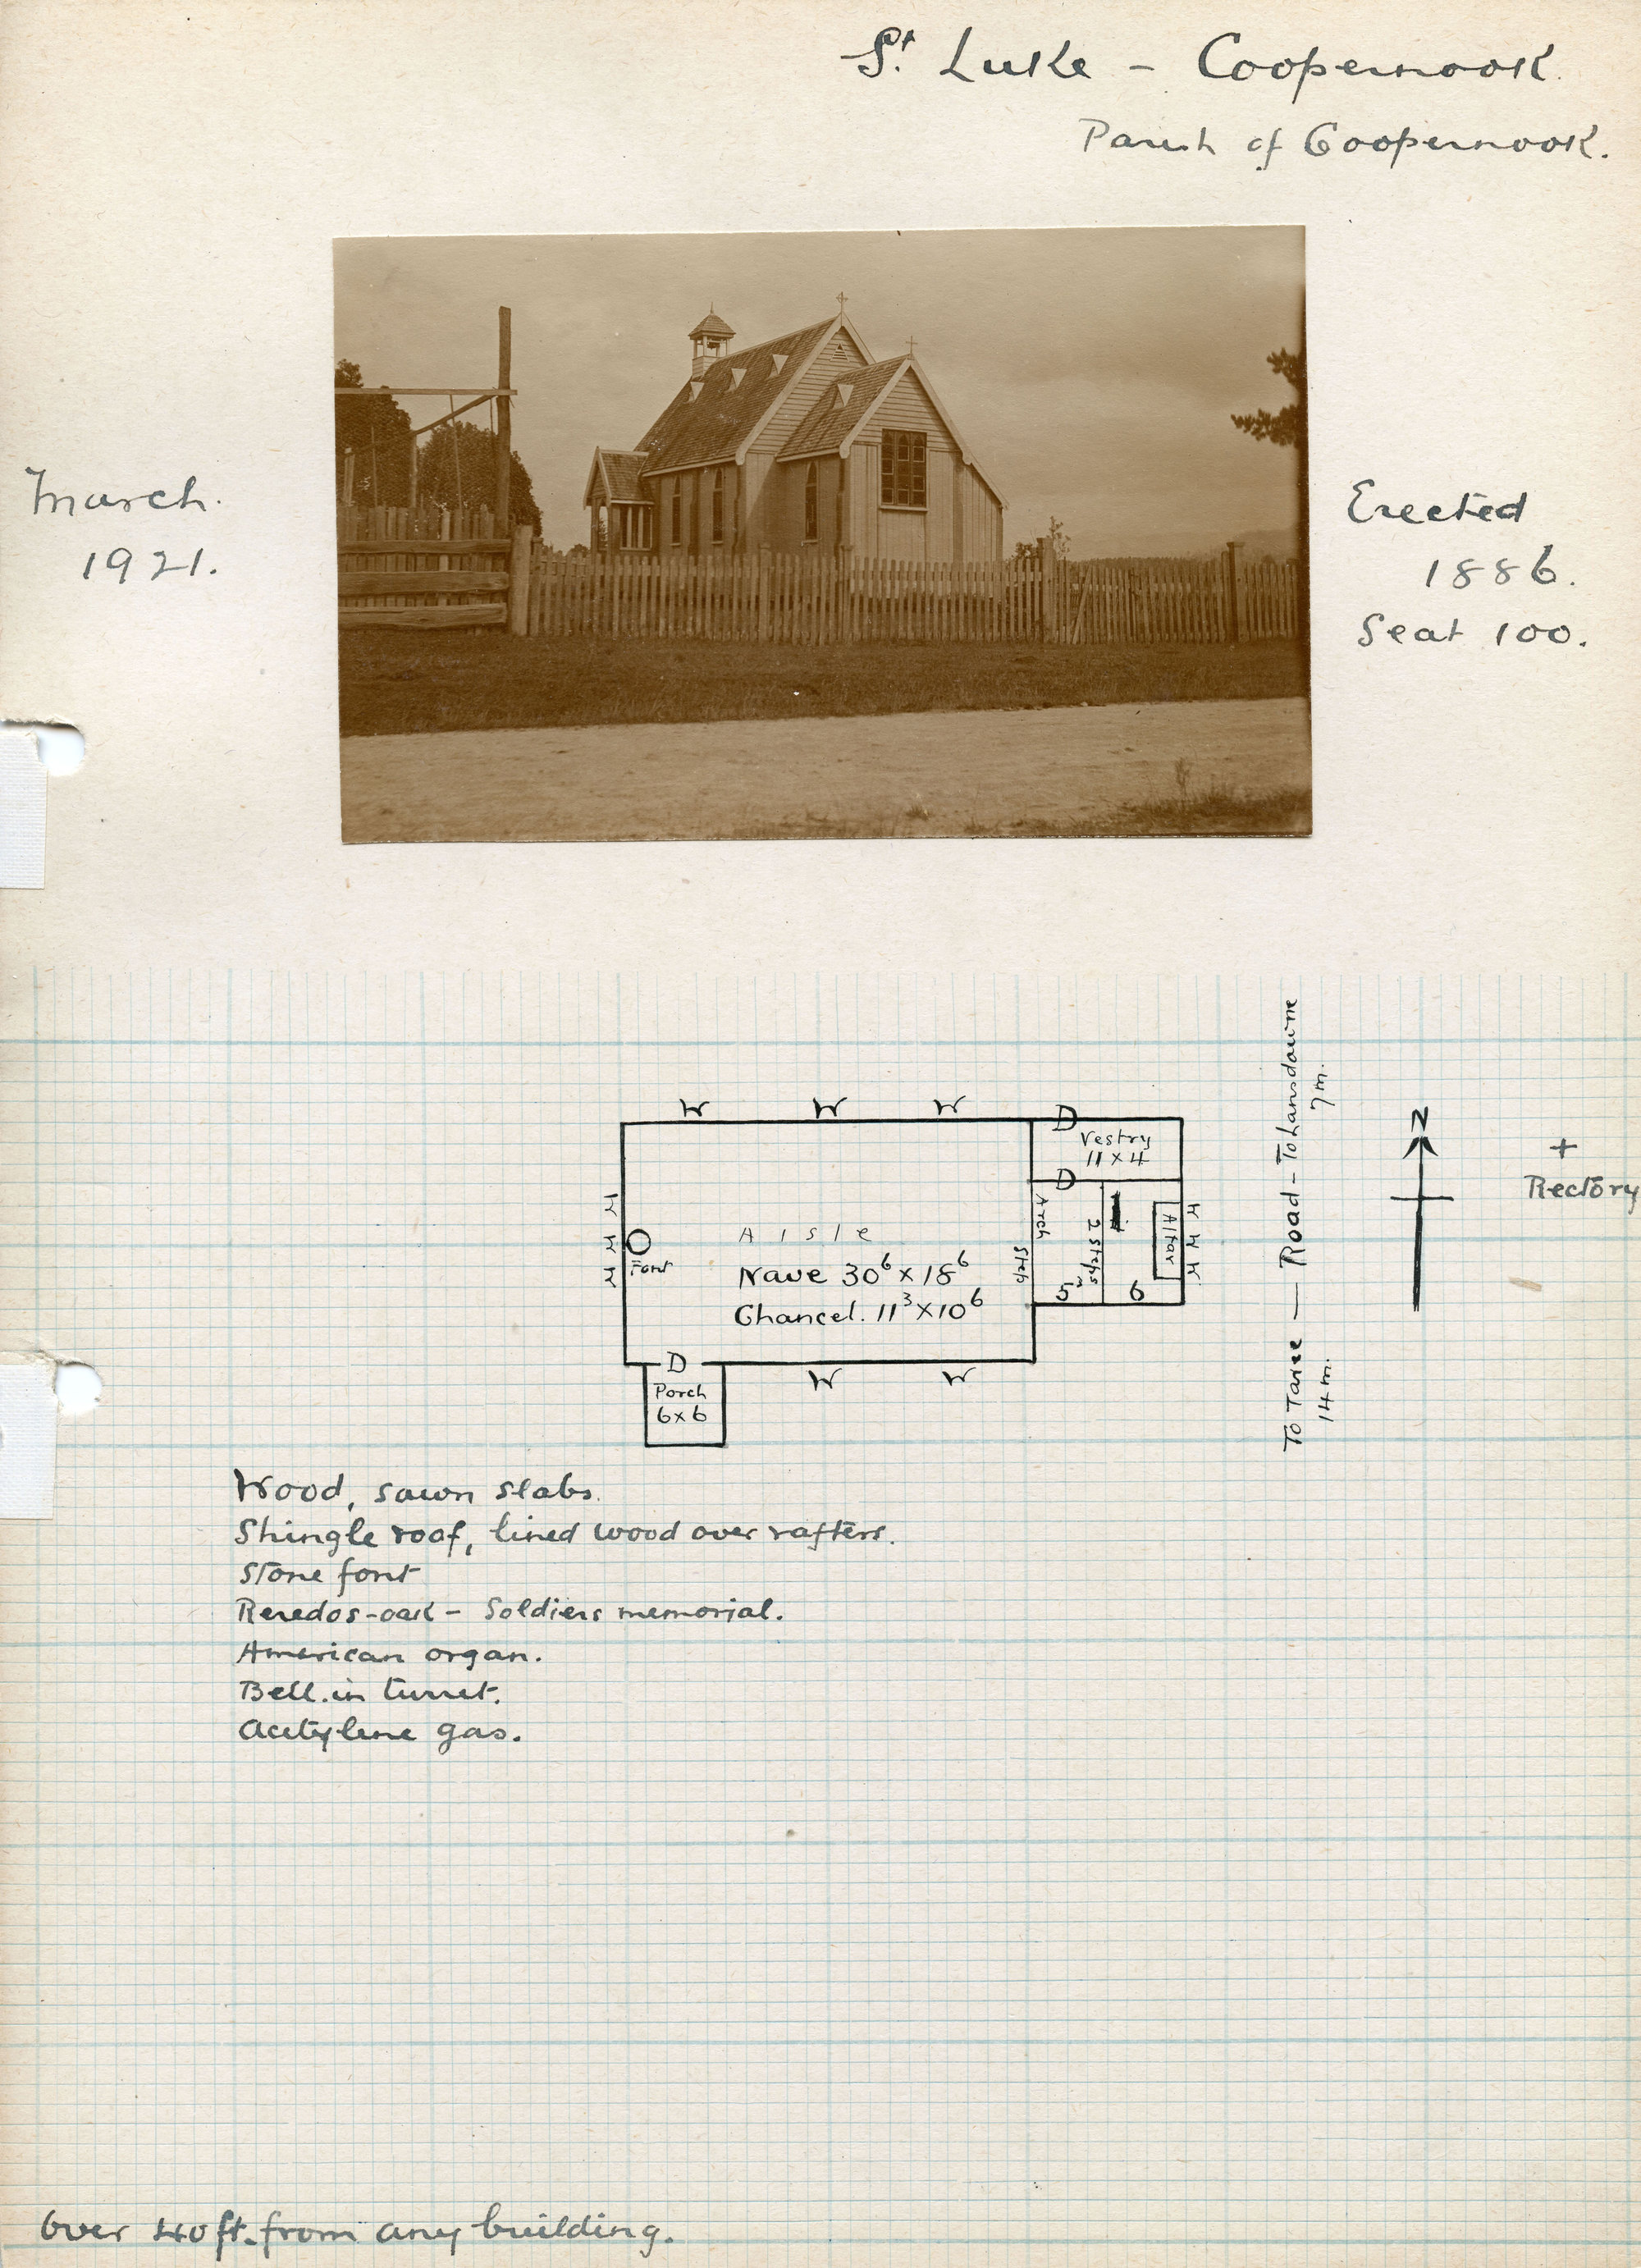 St. Luke - Coopernook.
Parish of Coopernook.
March.
1921.
Erected
1886.
Seat 100.
W W W
D
Vestry
11 x 4
D
W
W
W
Font
Aisle
Nave 30⁶ x 18⁶
Chancel. 11³ x 10⁶
Arch
Step
2 Steps
5³ 6
Altar
W
W
W
D
W W
Porch
6x6
To Taree — Road - To Lansdowne
14 m.
7 m.
N
+
Rectory
Wood, sawn slabs.
Shingle roof, lined wood over rafters.
Stone font
Reredos-oak - Soldiers memorial.
American organ.
Bell in turret.
Acetylene gas.
Over 40 ft. from any building.